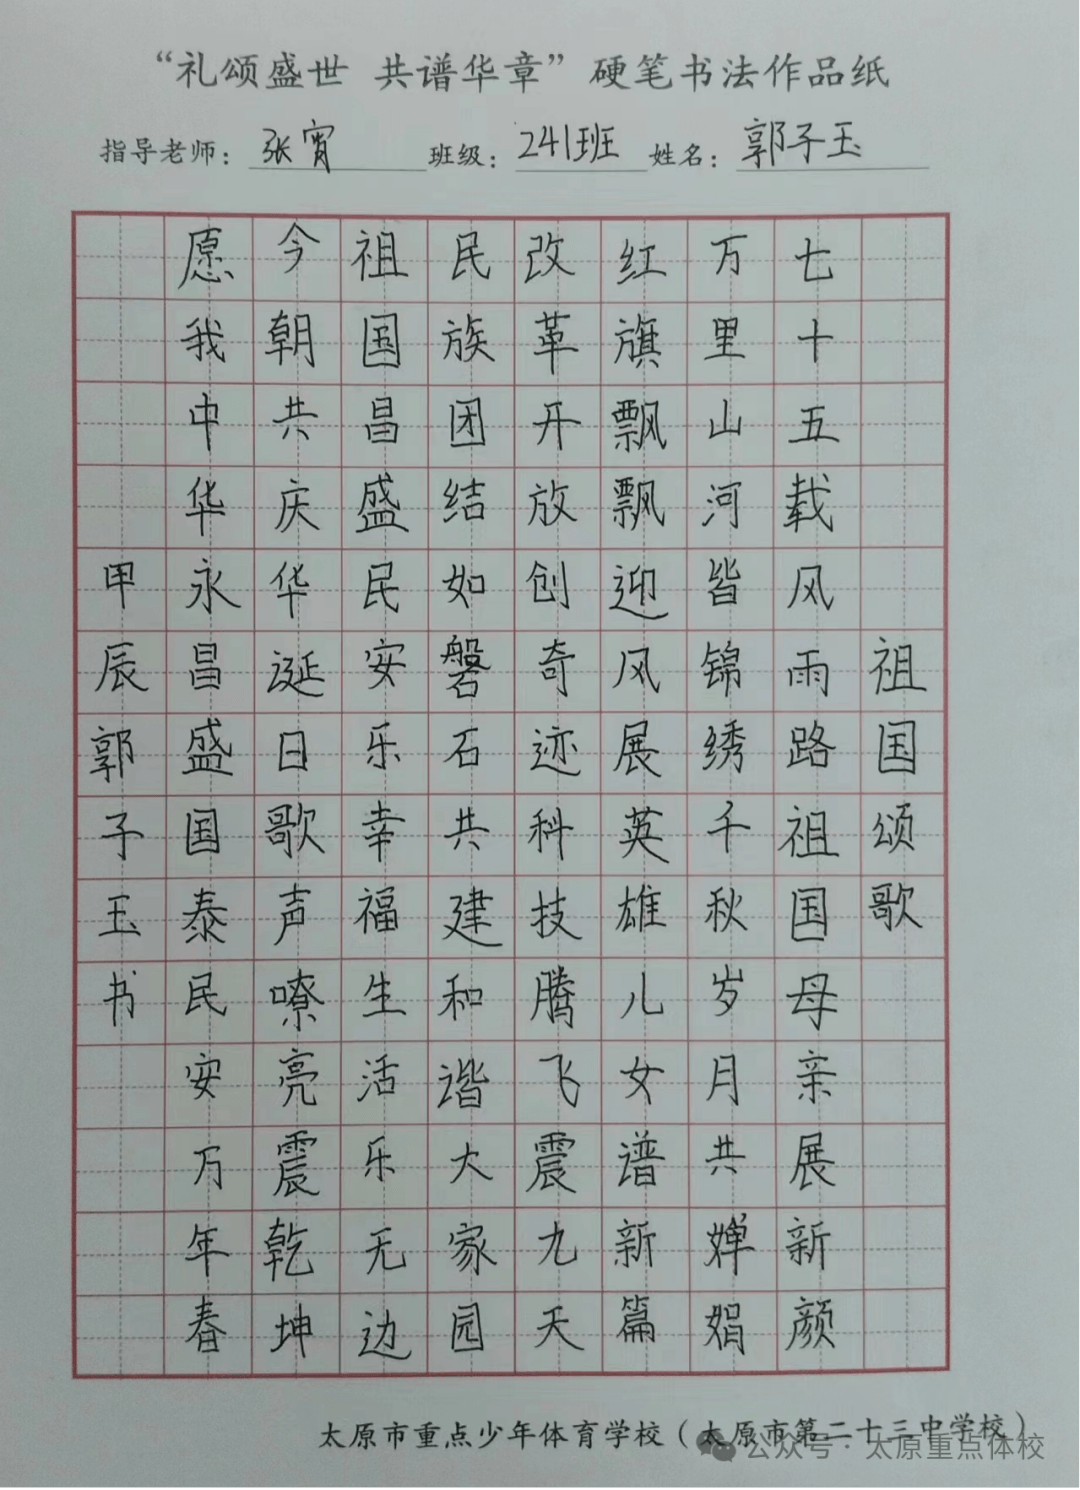 “礼颂盛世 共谱华章”硬笔书法作品纸
指导老师：张宵 班级：241班 姓名：郭子玉
祖国颂歌
七十五载风雨路祖国母亲展新颜
万里山河皆锦绣千秋岁月共婵娟
红旗飘飘迎风展英雄儿女谱新篇
改革开放创奇迹科技腾飞震九天
民族团结如磐石共建和谐大家园
祖国昌盛民安乐幸福生活乐无边
今朝共庆华诞日歌声嘹亮震乾坤
愿我中华永昌盛国泰民安万年春
甲辰郭子玉书
太原市重点少年体育学校（太原市第二十三中学校）
公众号·太原重点体校